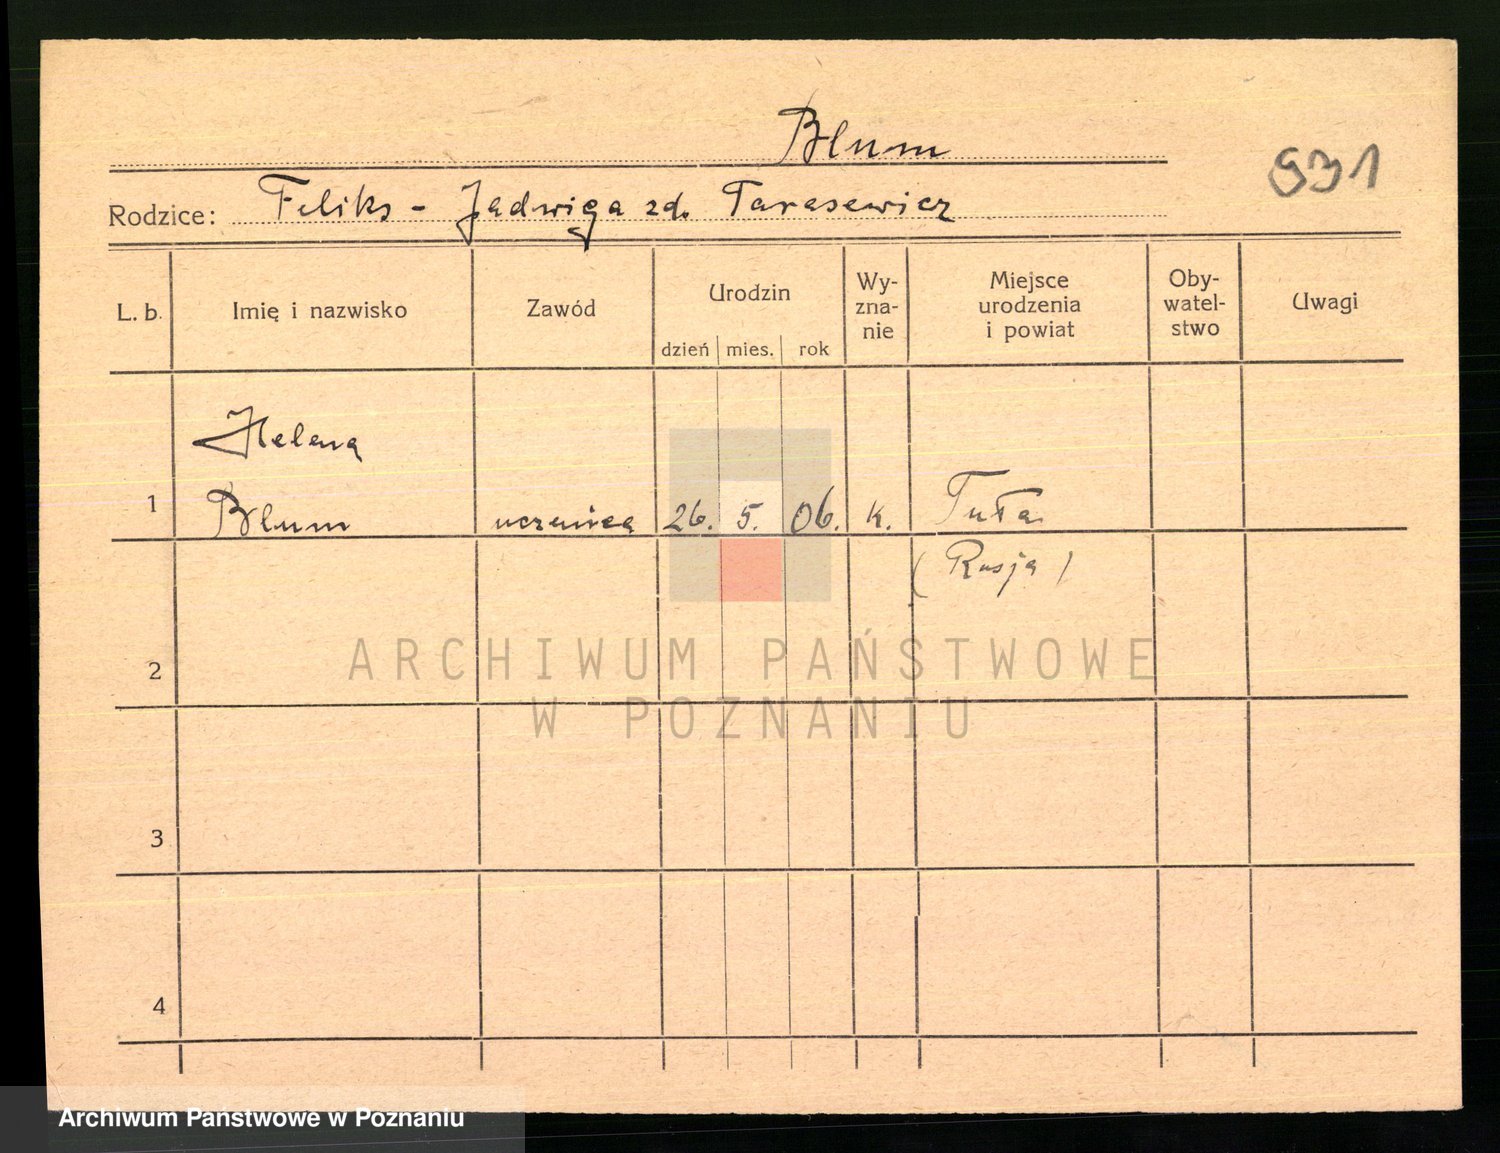 Blum
931
Rodzice: Feliks - Jadwiga zd. Tarasewicz
L. b. Imię i nazwisko Zawód Urodzin dzień mies. rok Wy-zna-nie Miejsce urodzenia i powiat Oby-watel-stwo Uwagi
Helena
1 Blum uczenica 26. 5. 06. k. Tuła
(Rosja)
2
ARCHIWUM PAŃSTWOWE
W POZNANIU
3
4
Archiwum Państwowe w Poznaniu